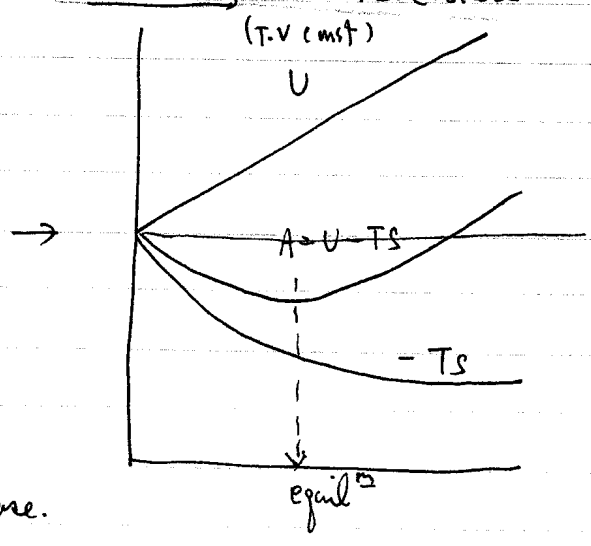 (T.V const)
U
A = U - TS
- TS
equil^m